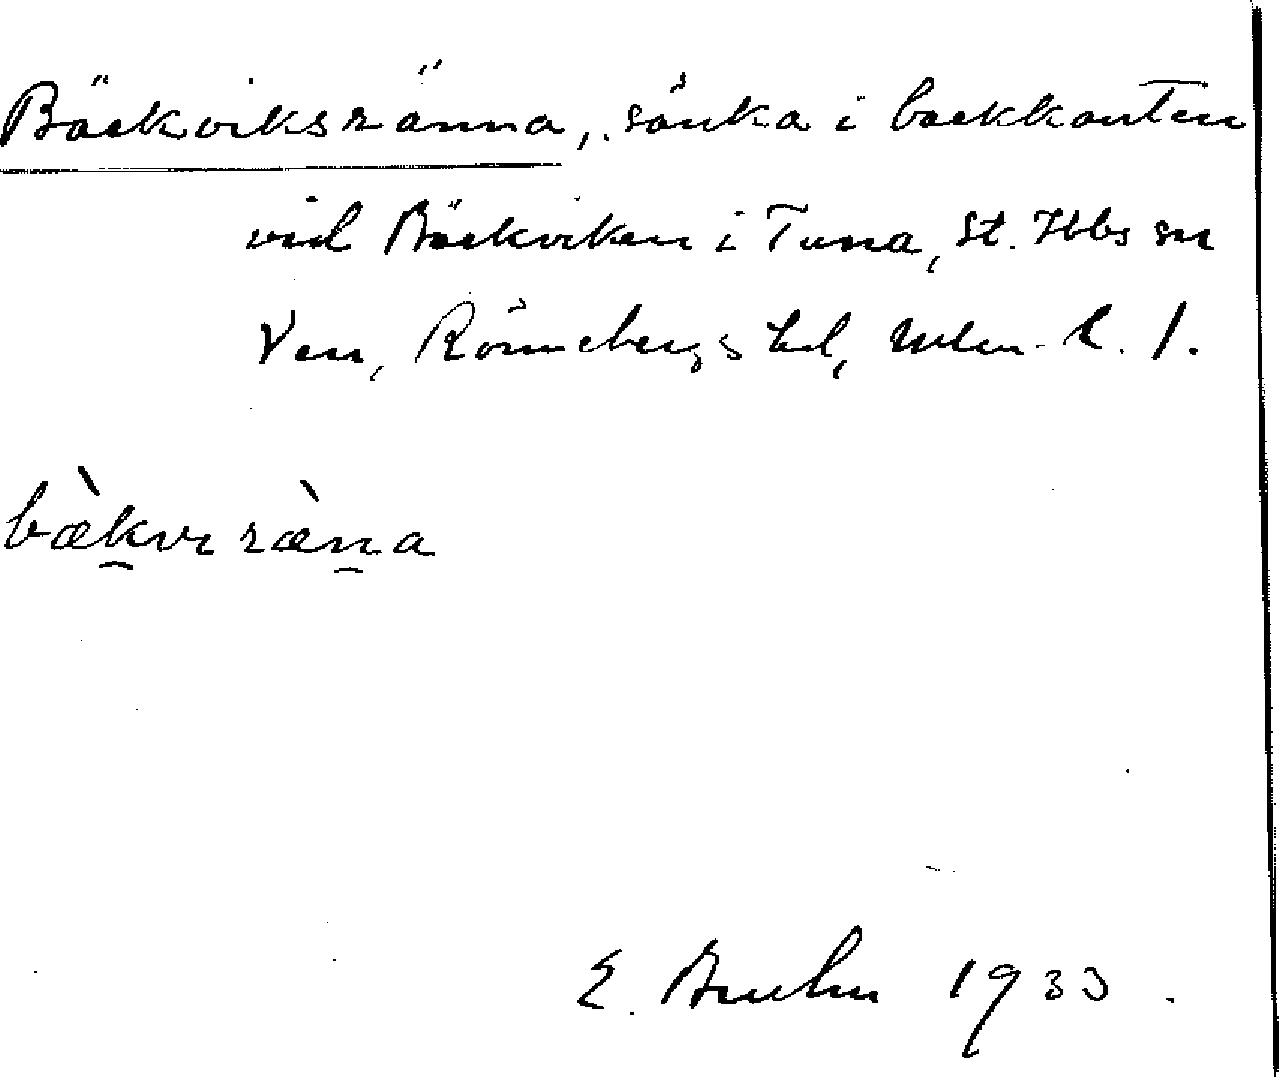 Bäckviksränna, sänka i backkanten
vid Bäckviken i Tuna, St. Ibbs sn
Ven, Rönnebergs hd, Mlm. l.
bækvi ræna
E. Bruhn 1933.